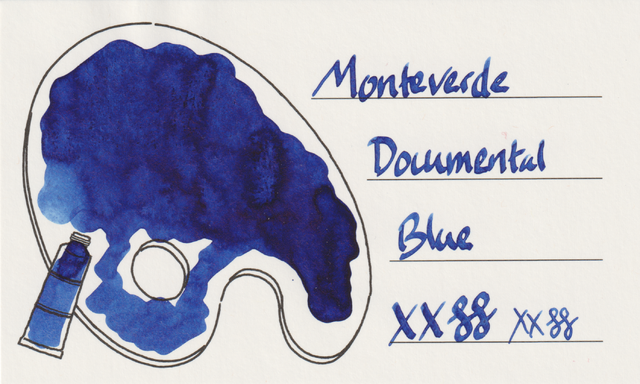 Monteverde
Documental
Blue
XX XX